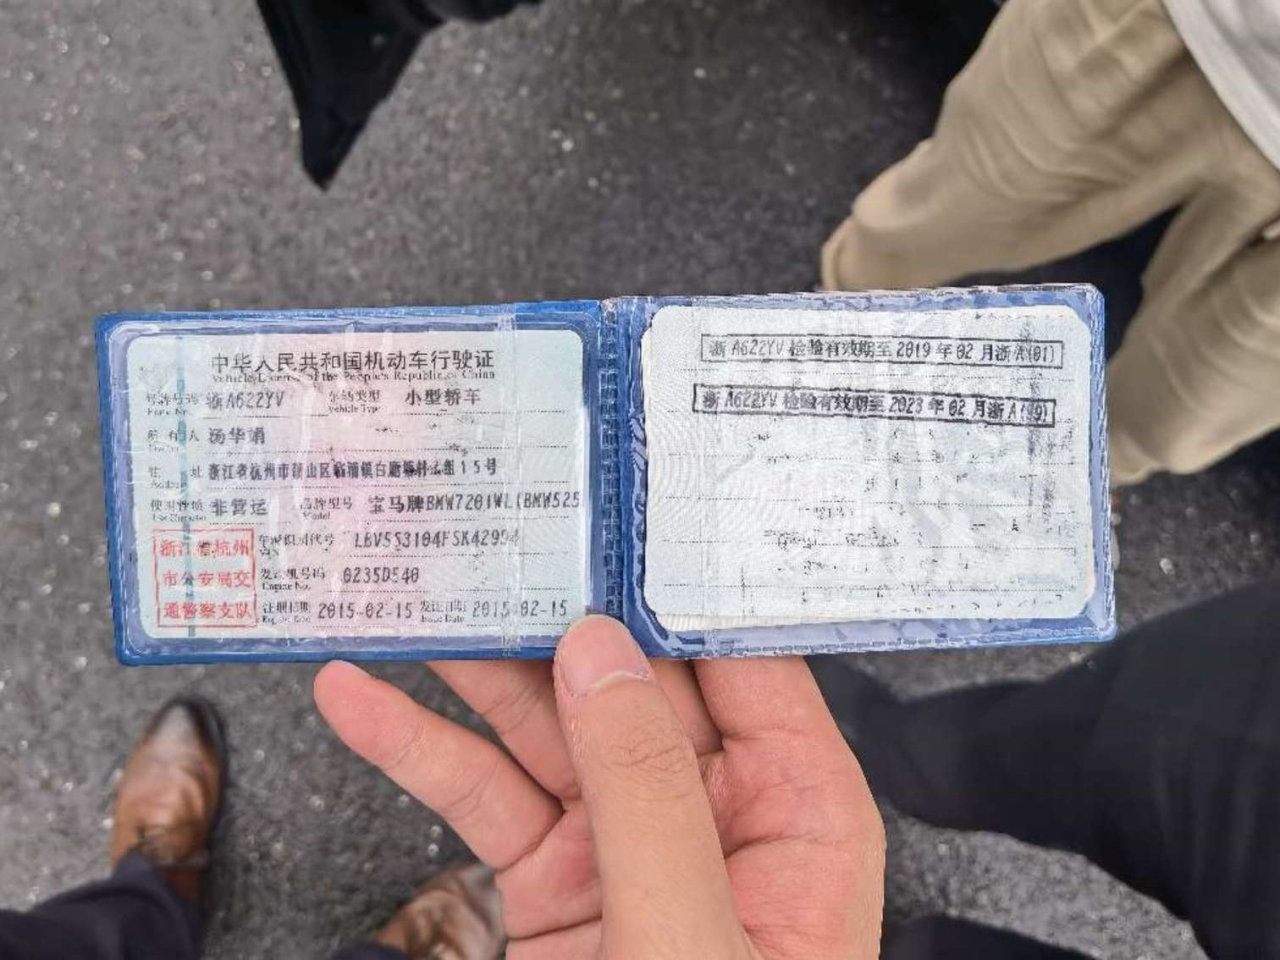 中华人民共和国机动车行驶证
Vehicle License of the People's Republic of China
号牌号码 浙A622YV 车辆类型 小型轿车
Plate No. Vehicle Type
所有人 汤华娟
住址 浙江省杭州市萧山区临浦镇
使用性质 非营运 品牌型号 宝马牌BMW7201WL(BMW525
Use Character Model
浙江省杭州
市公安局交
通警察支队
车辆识别代号 LBV5S3104FSK4299
VIN
发动机号码 0235D540
Engine No.
注册日期 2015-02-15 发证日期 2015-02-15
Register Date Issue Date
浙A622YV 检验有效期至2019年02月浙A(01)
浙A622YV 检验有效期至2023年02月浙A(99)